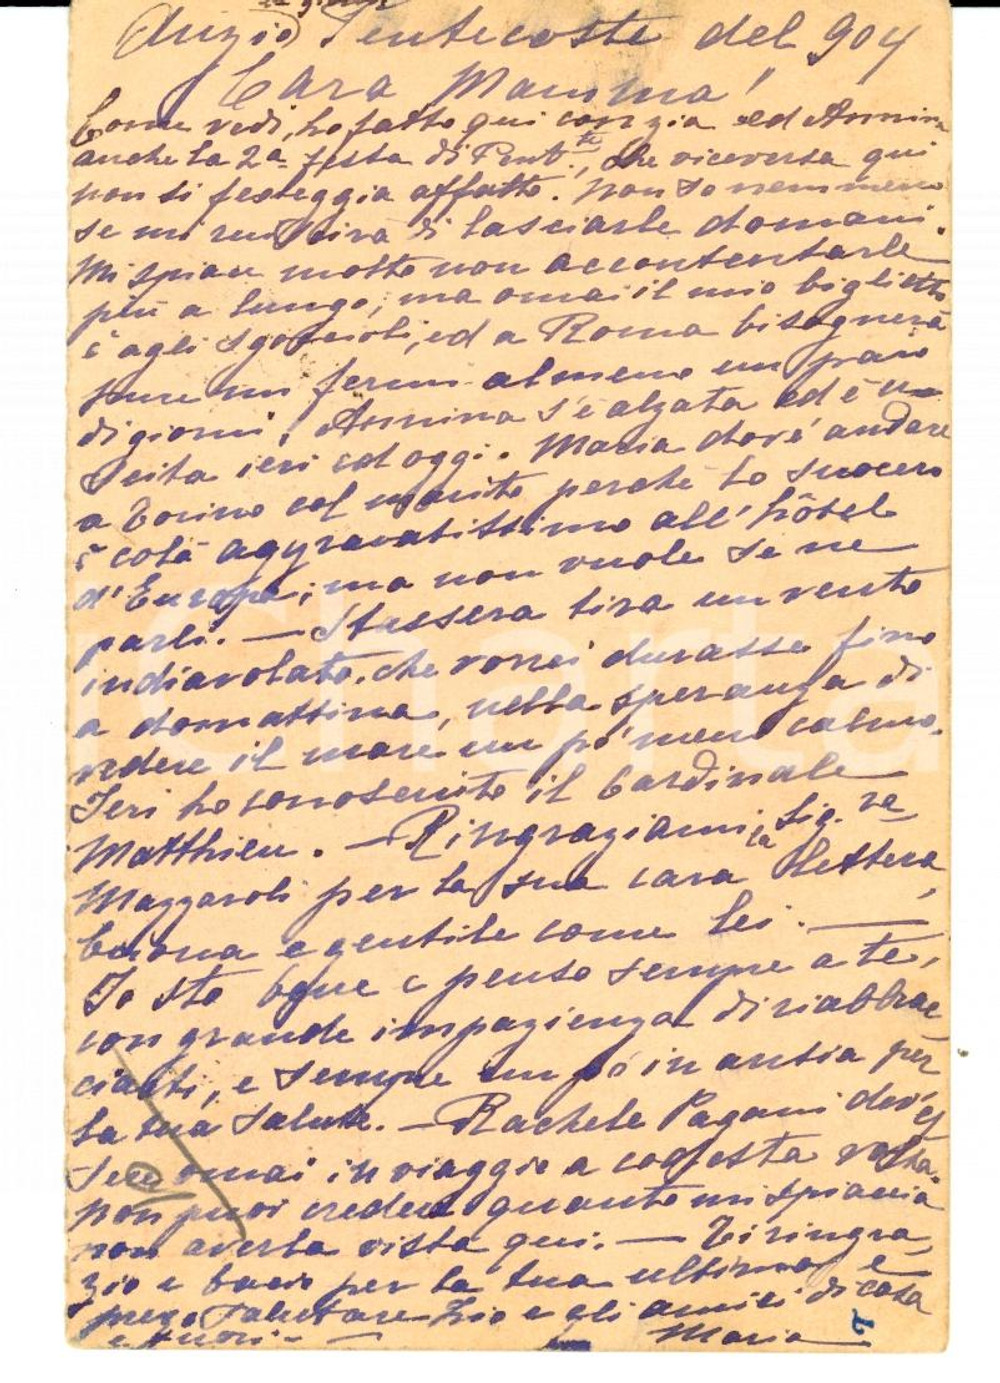 2a giorno
Anzio Pentecoste del 904
Cara Mamma!
Come vedi, ho fatto qui con zia ed Annina
anche la 2a festa di Pent.te, che viceversa qui
non si festeggia affatto. Non so nemmeno
se mi riuscirà di lasciarle domani.
Mi spiace molto non accontentarle
più a lungo, ma omai il mio biglietto
è agli sgoccioli, ed a Roma bisognerà
pure mi fermi almeno un paio
di giorni. Annina s'è alzata ed è u=
scita ieri ed oggi. Maria dovè andare
a Torino col marito perchè lo suocero
è colà aggravatissimo all'hôtel
d'Europe; ma non vuole se ne
parli. — Stassera tira un vento
indiavolato, che vorrei durasse fino
a domattina, nella speranza di
vedere il mare un po' meno calmo.
Ieri ho conosciuto il Cardinale
Matthieu. — Ringraziami la Sig.ra
Mazzaroli per la sua cara lettera,
buona e gentile come lei. —
Io sto bene e penso sempre a te,
con grande impazienza di riabbrac
ciarti, e sempre un po' in ansia per
la tua salute. — Rachele Pagani dov'es
sere omai in viaggio a codesta volta.
Non puoi credere quanto mi spiaccia
non averla vista qui. — Ti ringra,
zio e bacio per la tua ultima e
prego salutare zio e gli amici di casa
e fuori — Maria